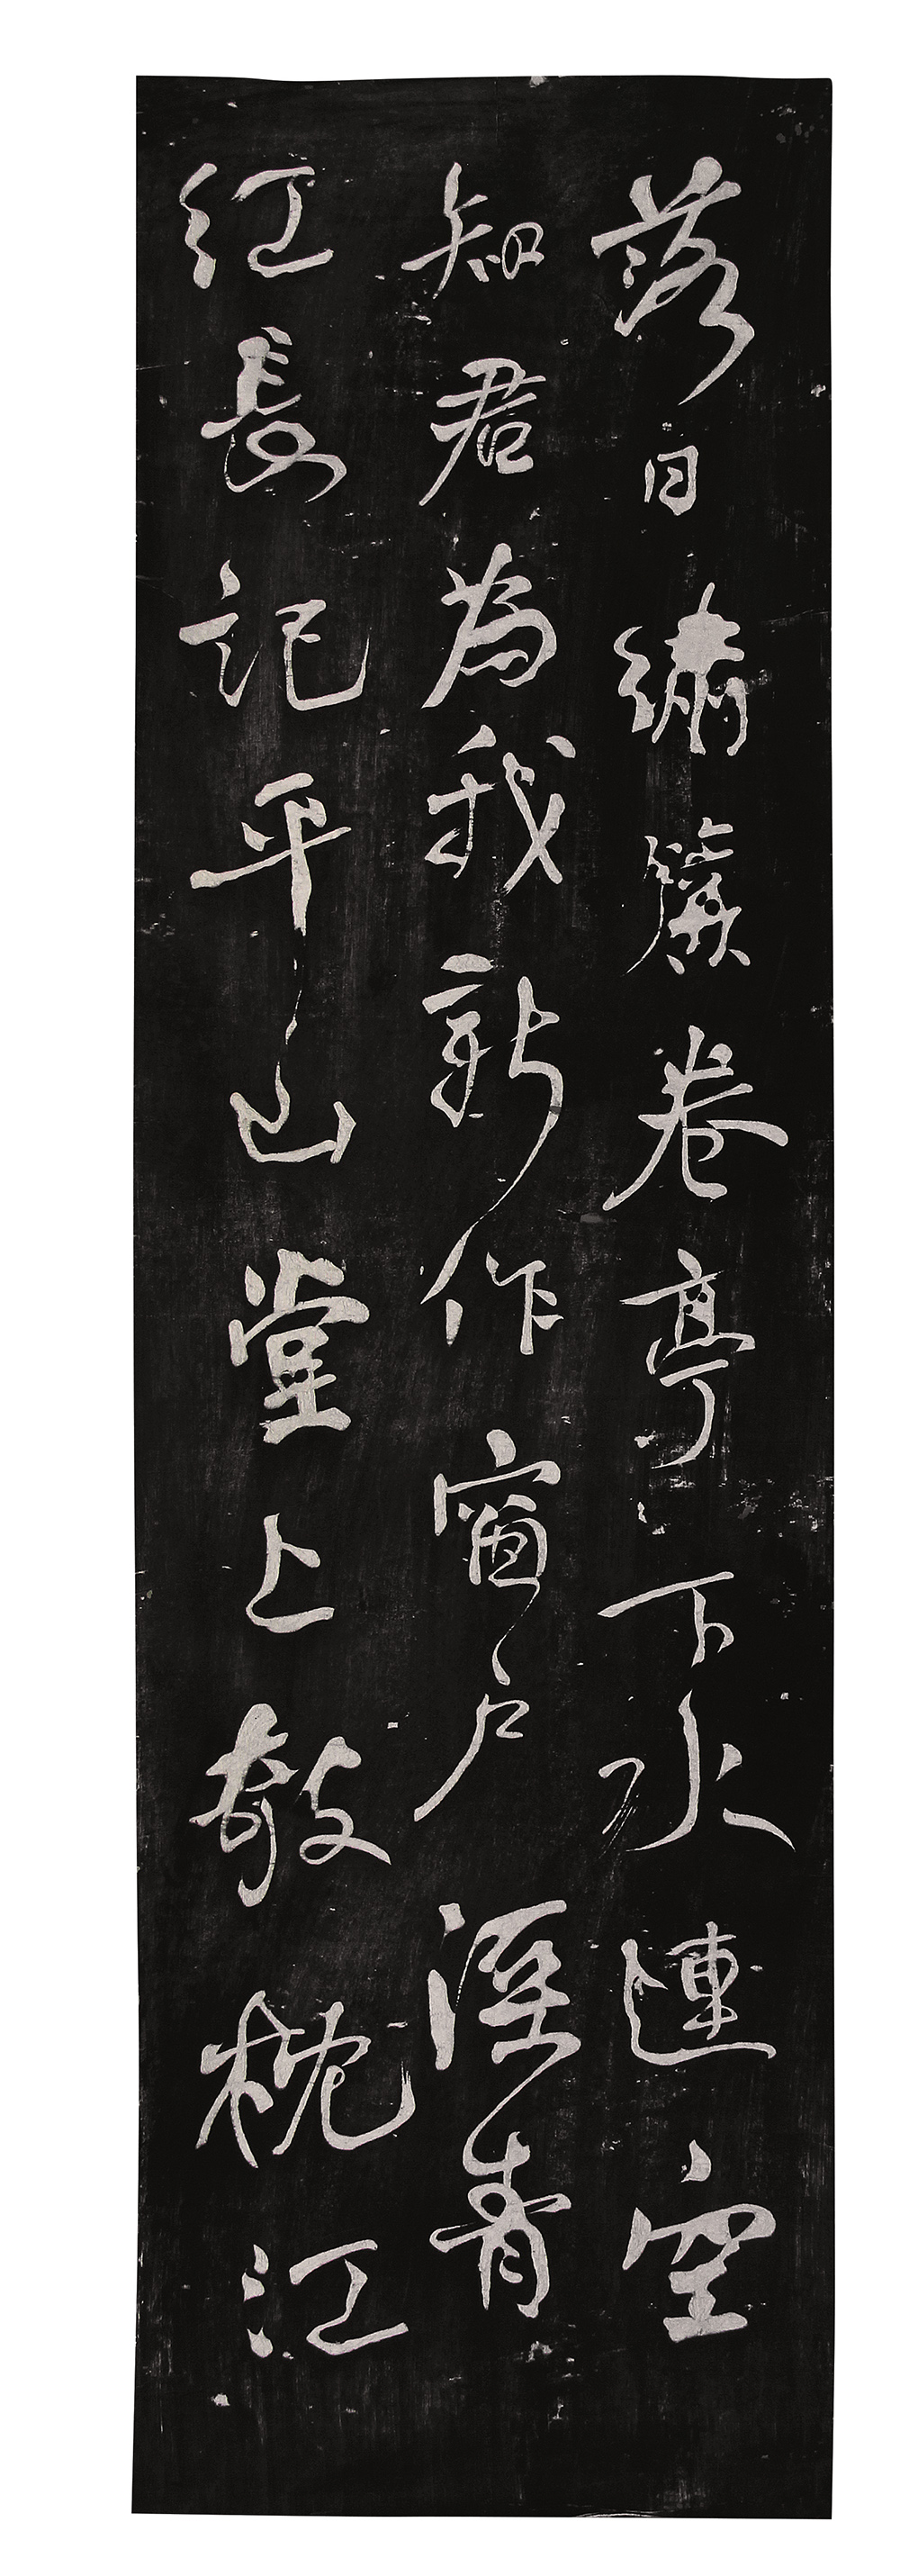 落日繡簾卷亭下水連空
知君為我新作窗户溼青
紅長記平山堂上欹枕江